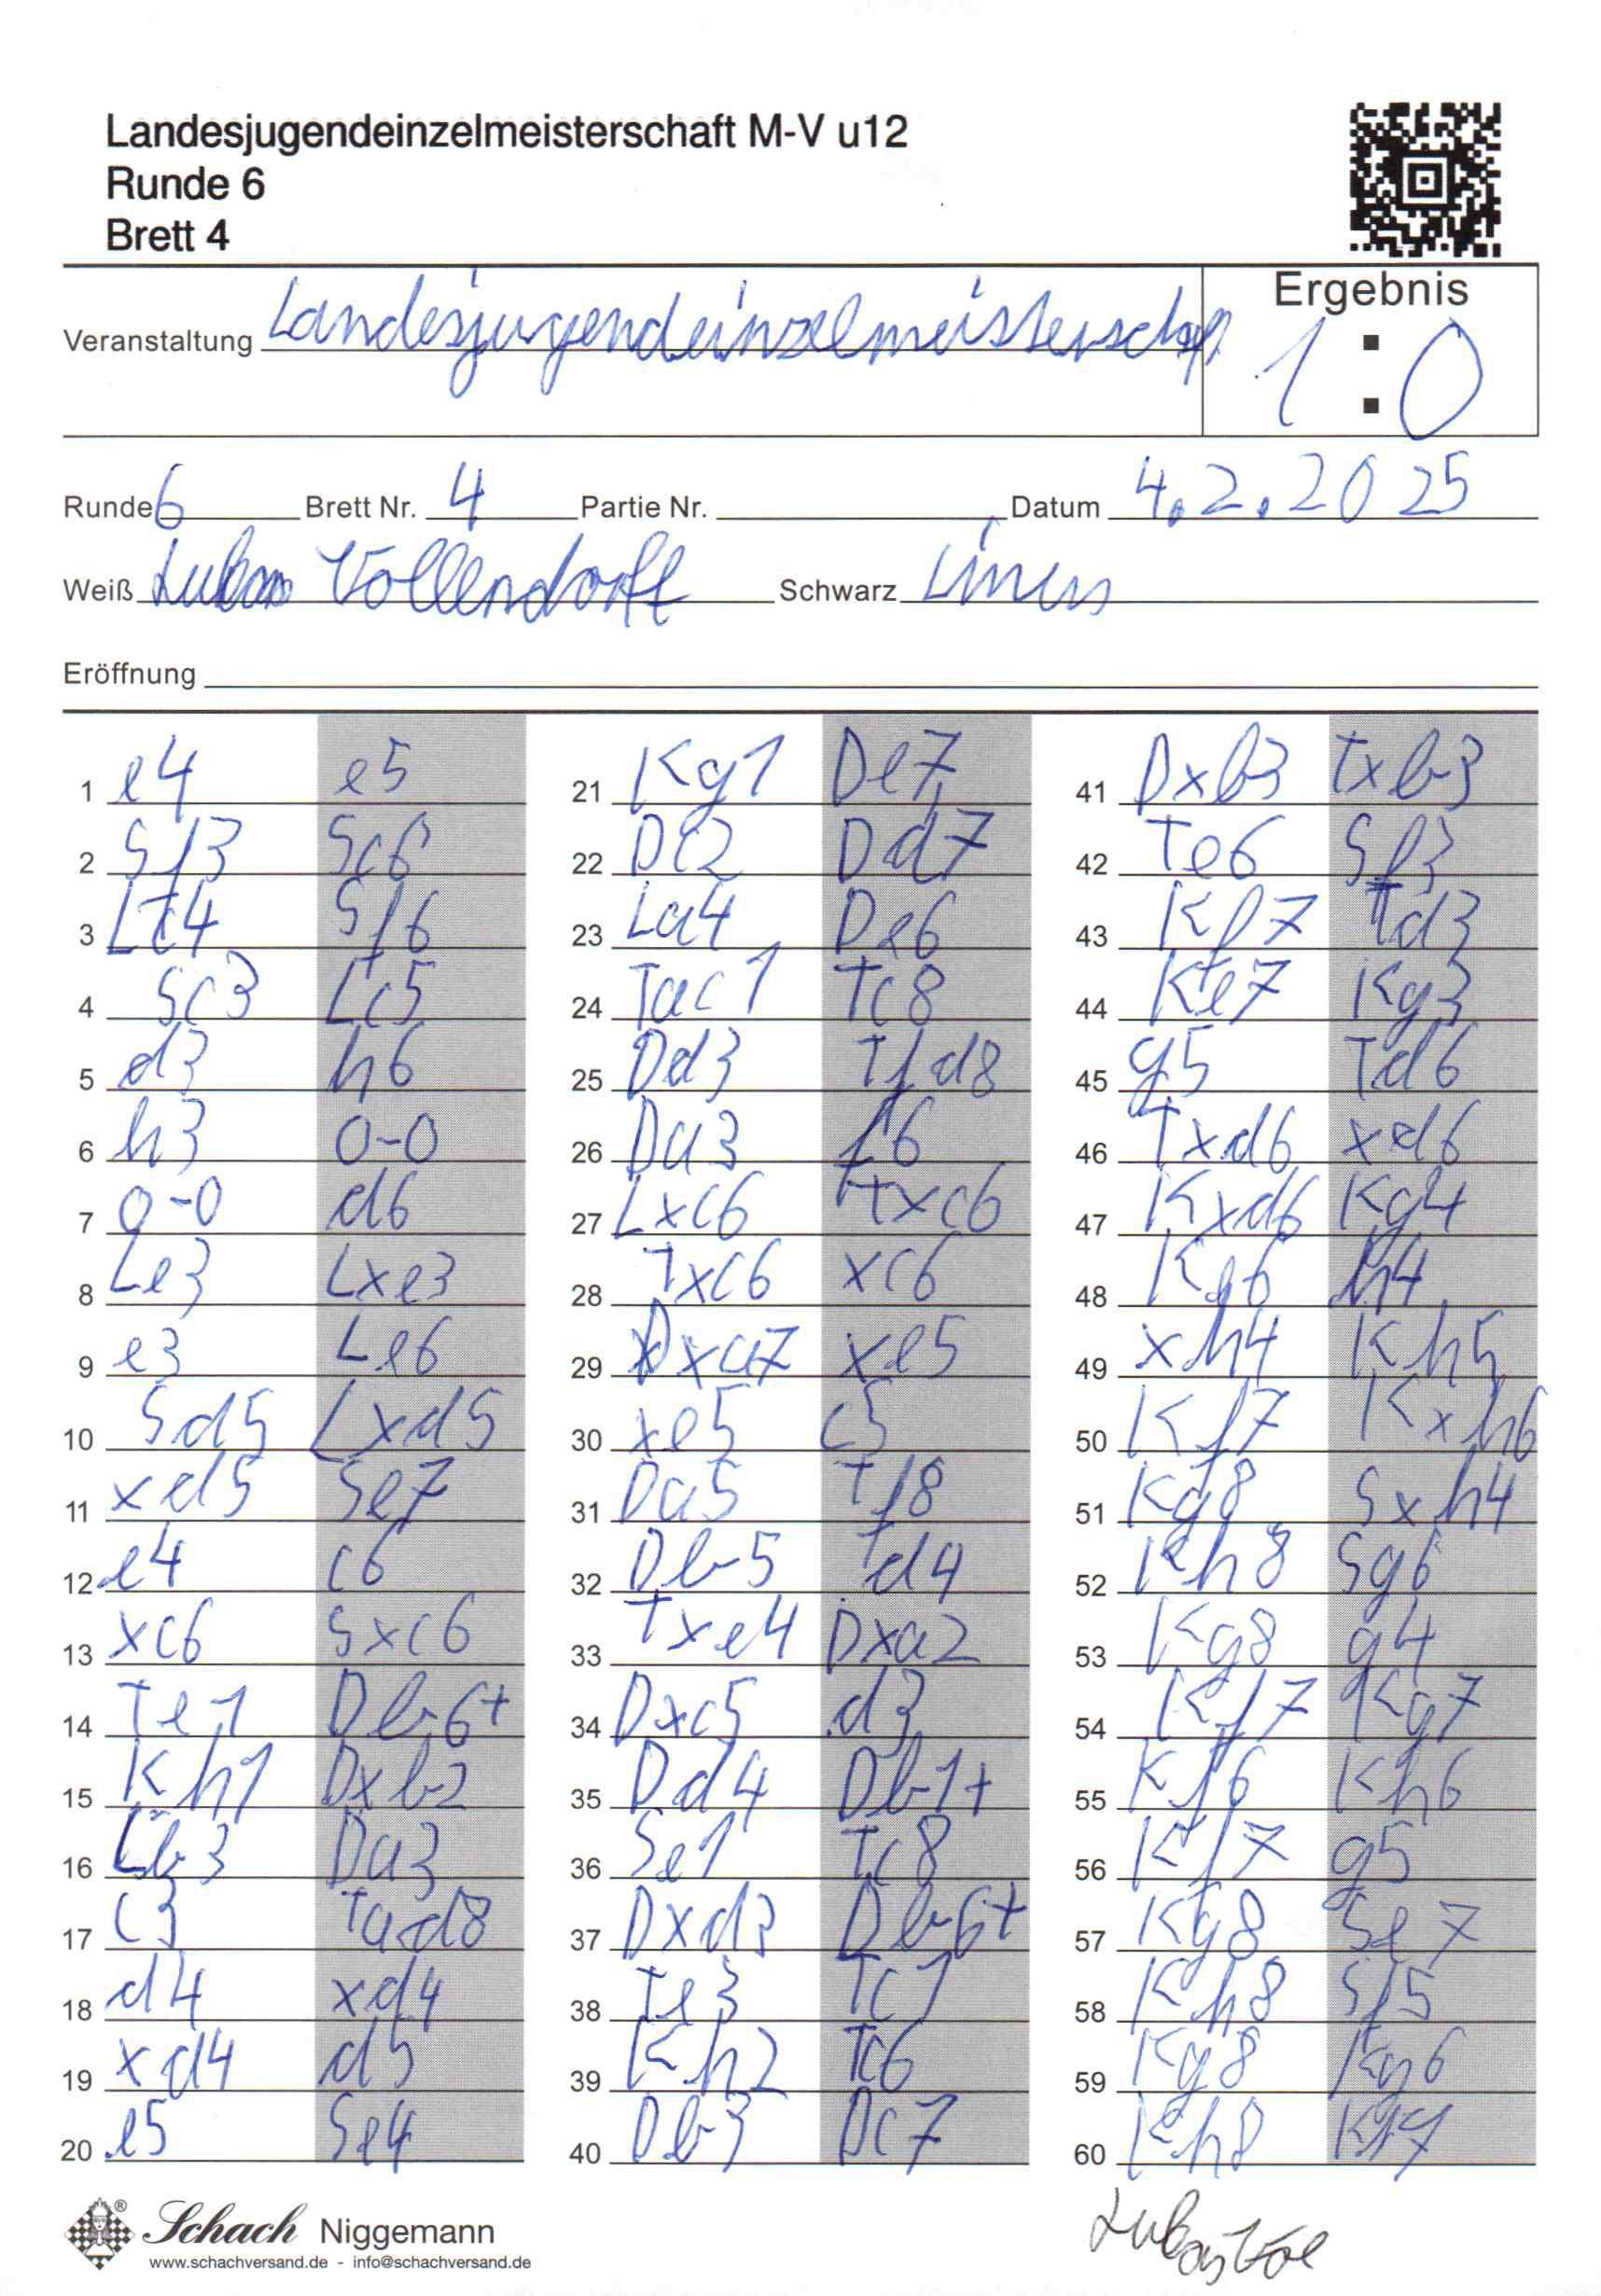 Landesjugendeinzelmeisterschaft M-V u12
Runde 6
Brett 4
Ergebnis
Veranstaltung Landesjugendeinzelmeisterschaft 1:0
Runde 6 Brett Nr. 4 Partie Nr. Datum 4.2.2025
Weiß Lukas Vollendorff Schwarz Linus
Eröffnung
1 e4 e5
2 Sf3 Sc6
3 Lc4 Sf6
4 Sc3 Lc5
5 d3 h6
6 h3 0-0
7 0-0 d6
8 Le3 Lxe3
9 e3 Le6
10 Sd5 Lxd5
11 xd5 Se7
12 e4 c6
13 xc6 Sxc6
14 Te1 Db6+
15 Kh1 Dxb2
16 Lb3 Da3
17 c3 Tad8
18 d4 xd4
19 xd4 d5
20 e5 Se4
21 Kg1 De7
22 Dc2 Dd7
23 La4 De6
24 Tac1 Tc8
25 Dd3 Tfd8
26 Da3 f6
27 Lxc6 Txc6
28 Txc6 xc6
29 Dxa7 xe5
30 xe5 c5
31 Da5 Tf8
32 Db5 d4
33 Txe4 Dxa2
34 Dxc5 d3
35 Dd4 Db1+
36 Se1 Tc8
37 Dxd3 Db6+
38 Te3 Tc1
39 Kh2 Tc6
40 Db3 Dc7
41 Dxb3 Txb3
42 Te6 Sf3
43 Kf7 Td3
44 Ke7 Kg3
45 g5 Td6
46 Txd6 xd6
47 Kxd6 Kg4
48 Ke6 h4
49 xh4 Kh5
50 Kf7 Kxh6
51 Kg8 Sxh4
52 Kh8 Sg6
53 Kg8 g4
54 Kf7 Kg7
55 Kf6 Kh6
56 Kf7 g5
57 Kg8 Se7
58 Kh8 Sf5
59 Kg8 Kg6
60 Kh8
Schach Niggemann
www.schachversand.de - info@schachversand.de